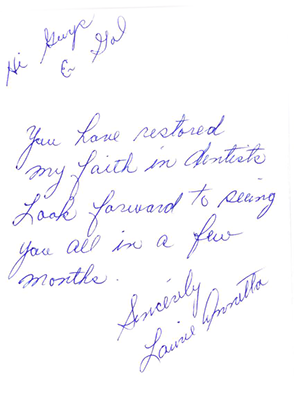 Hi Guys
& Gal
You have restored
my faith in dentists
Look forward to seeing
you all in a few
months.
Sincerely
Laurie